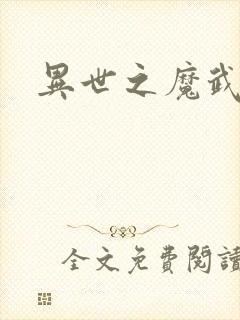 異世之魔武
全文免費閱讀